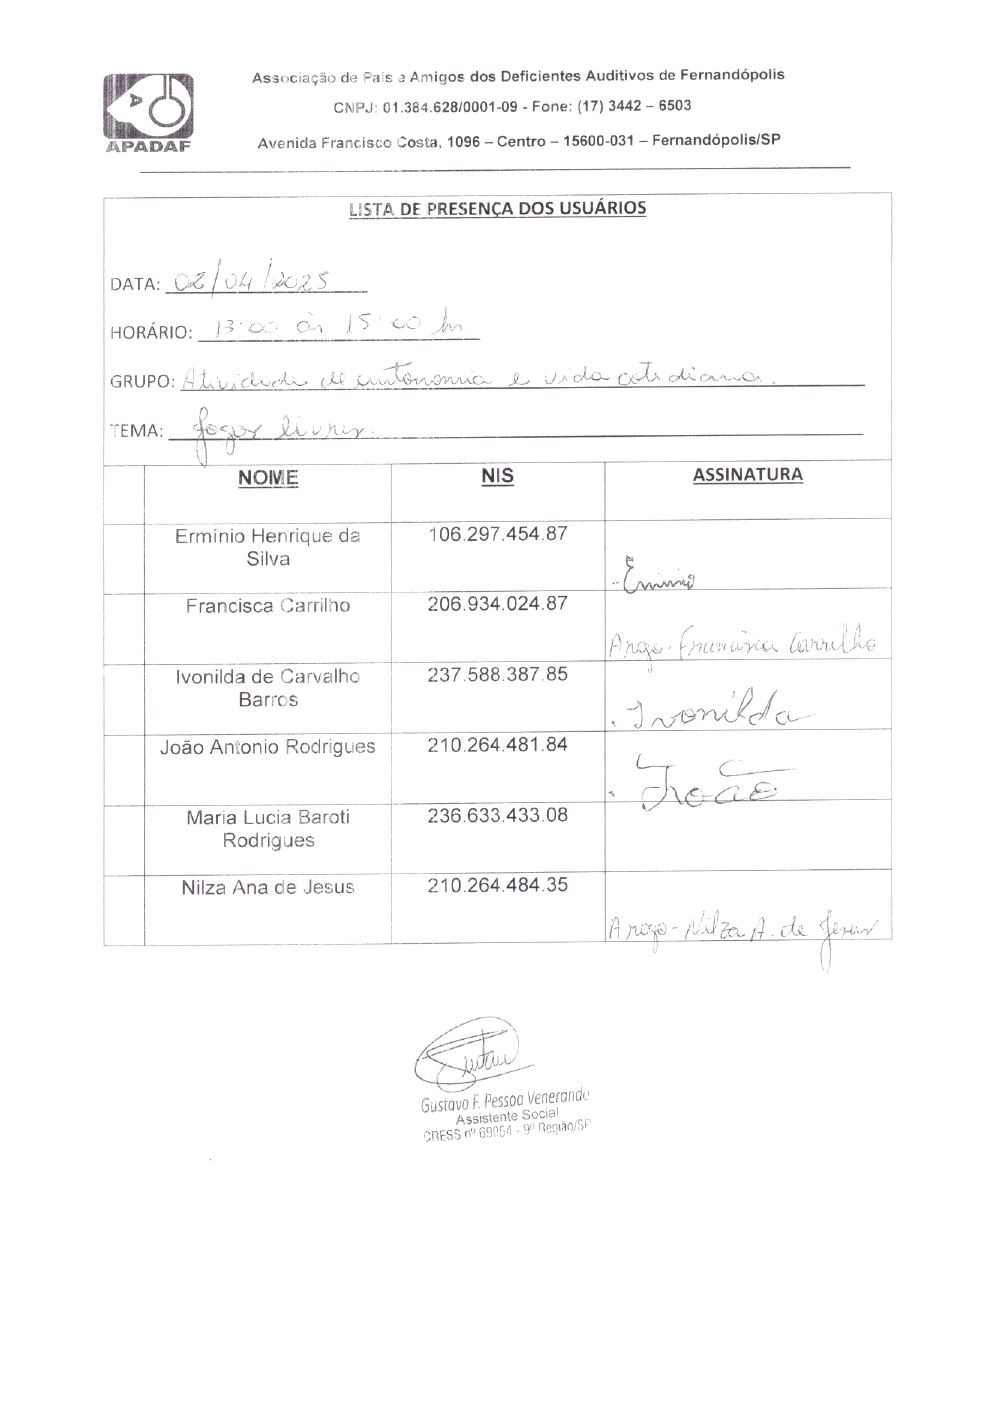 Associação de Pais e Amigos dos Deficientes Auditivos de Fernandópolis
CNPJ: 01.384.628/0001-09 - Fone: (17) 3442 – 6503
APADAF
Avenida Francisco Costa, 1096 – Centro – 15600-031 – Fernandópolis/SP
LISTA DE PRESENÇA DOS USUÁRIOS
DATA: 02/04/2025
HORÁRIO: 13:00 às 15:00 hr
GRUPO: Atividade de autonomia e vida cotidiana.
TEMA: Jogos livres.
NOME NIS ASSINATURA
Ermínio Henrique da 106.297.454.87
Silva
Francisca Carrilho 206.934.024.87
Francisca Carrilho
Ivonilda de Carvalho 237.588.387.85
Barros Ivonilda
João Antonio Rodrigues 210.264.481.84
João
Maria Lucia Baroti 236.633.433.08
Rodrigues
Nilza Ana de Jesus 210.264.484.35
Nilza A. de Jesus
Gustavo F. Pessoa Venerando
Assistente Social
CRESS nº 69054 - 9ª Região/SP